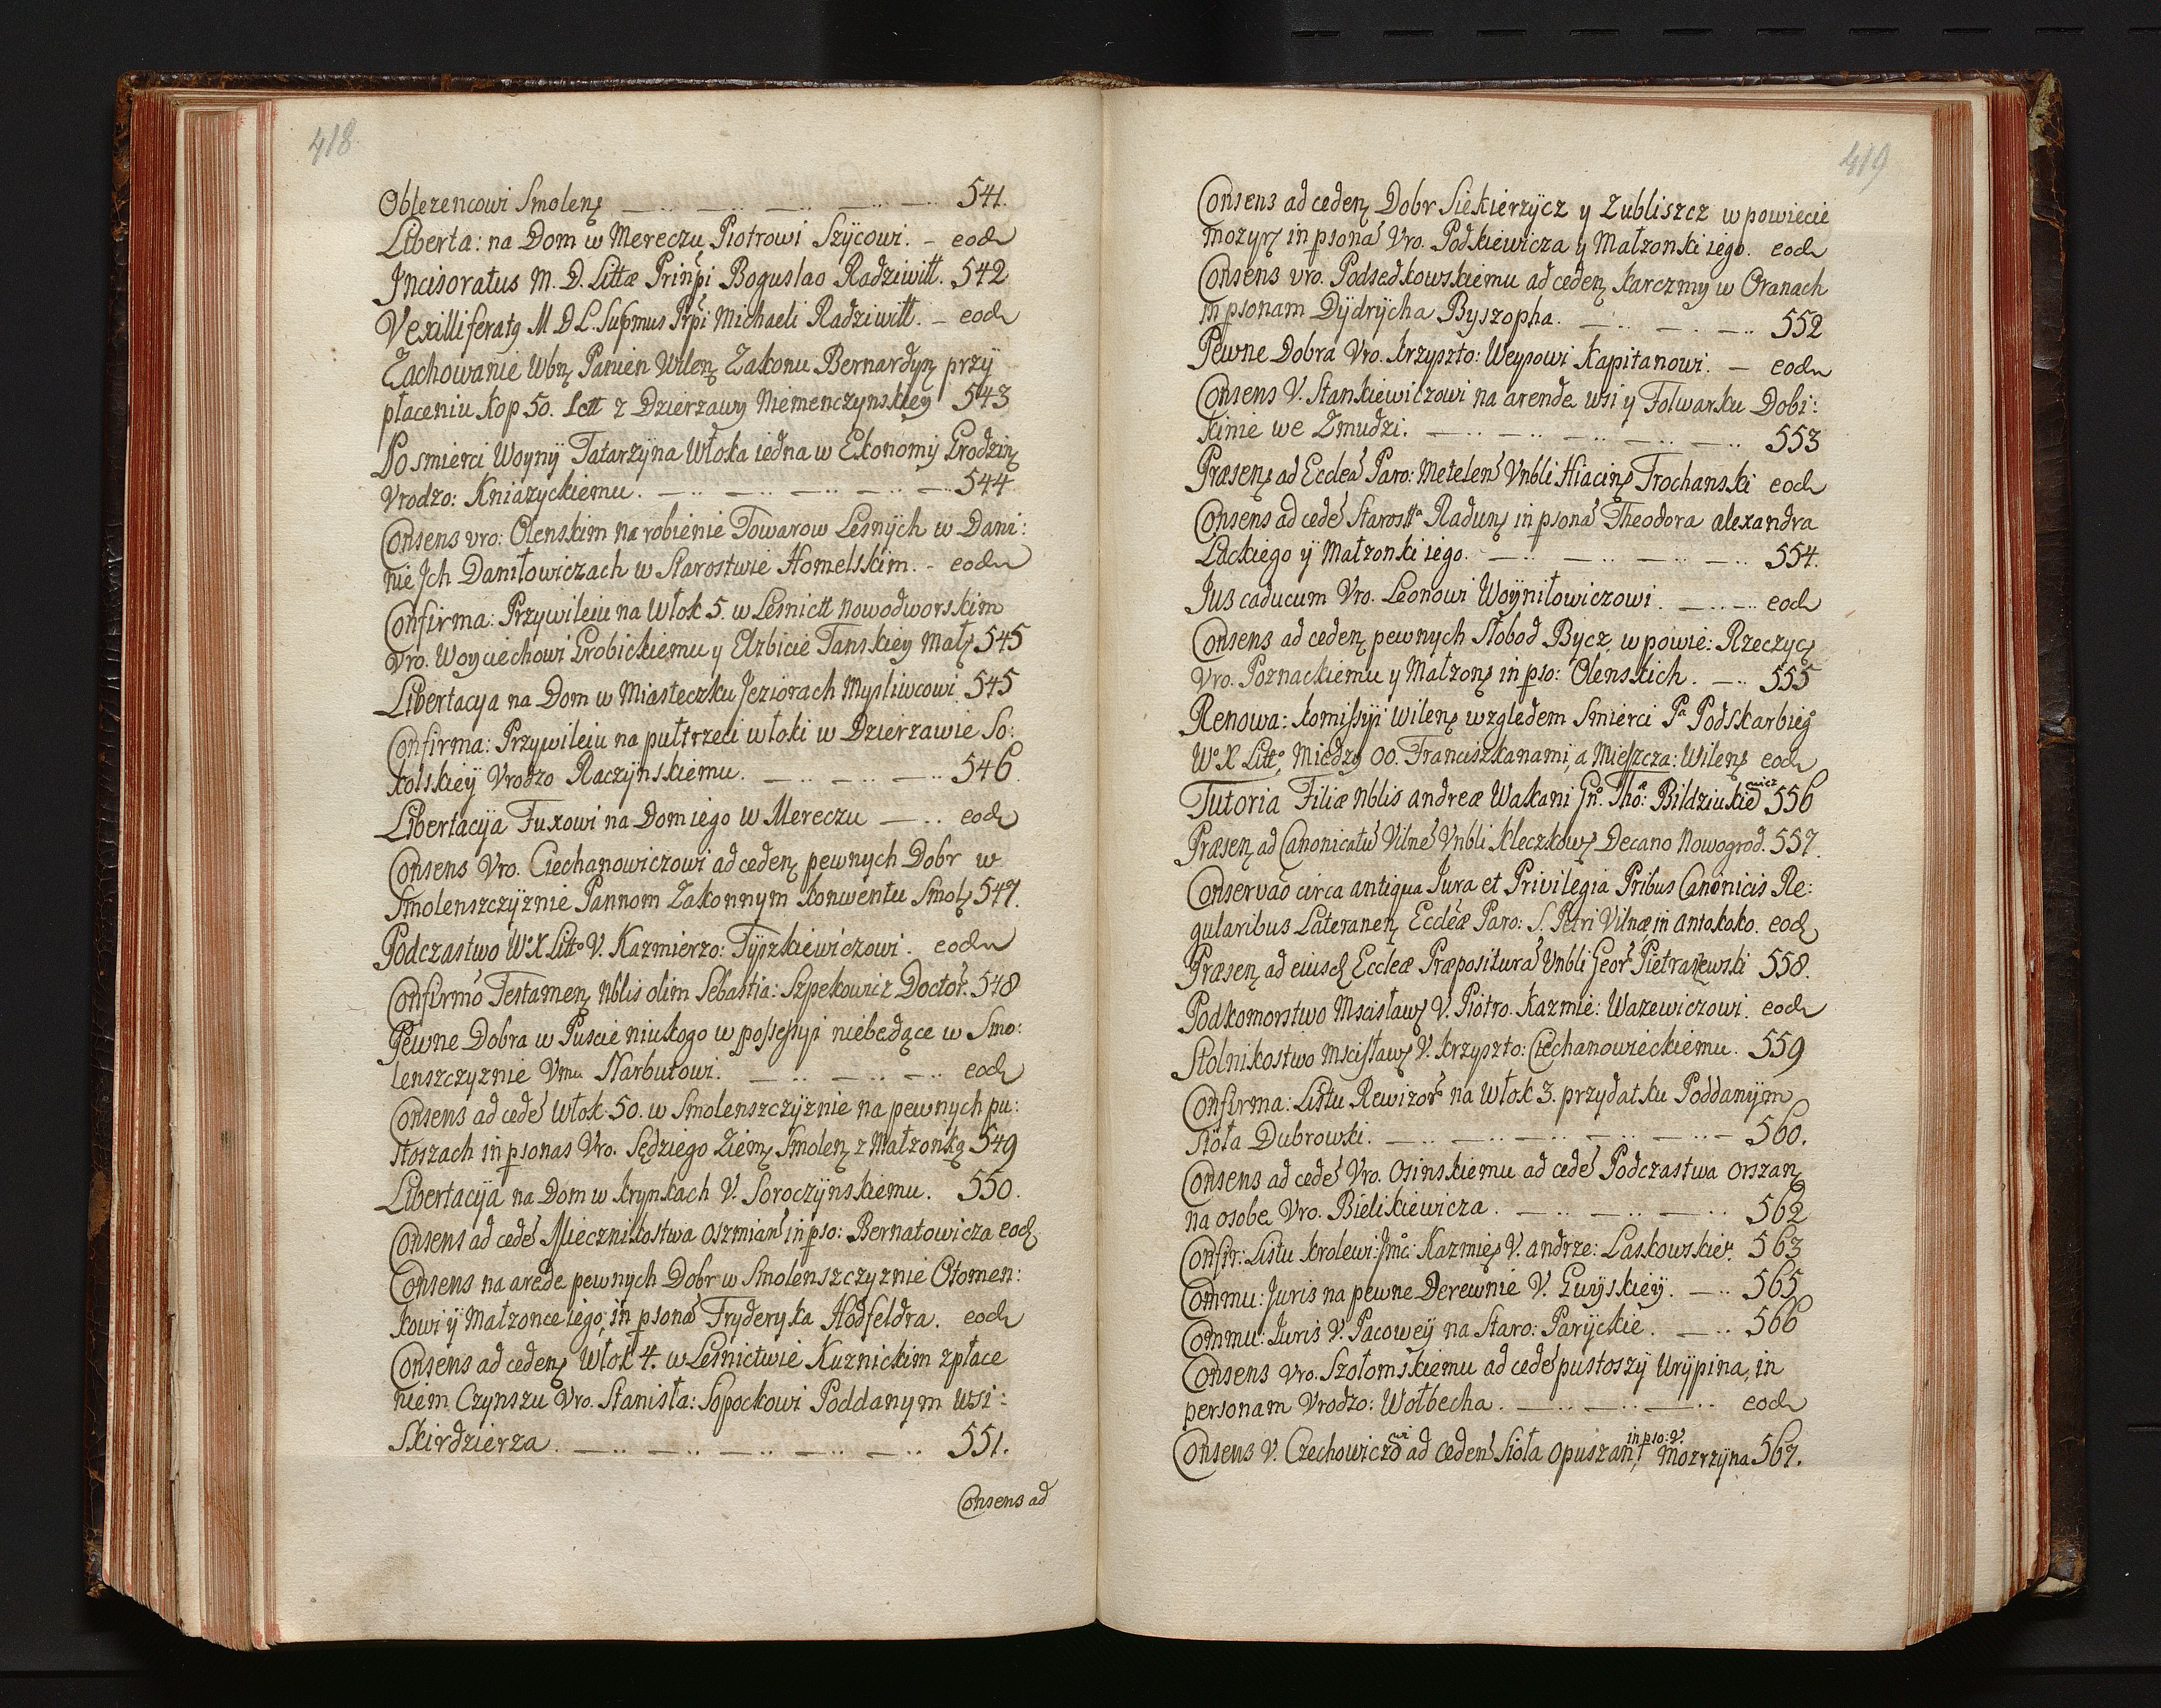 418
Oblezencowi Smolenʒ 541.
Liberta: na Dom w Mereczu Piotrowi Szÿcowi. eod
Incisoratus M. D. Littæ Prinpi Boguslao Radziwiłł. 542
Vexilliferatg M D L. Supmus Prpi Michaeli Radziwiłł. eod
Zachowanie Wbnʒ Panien Wilenʒ Zakonu Bernardÿnʒ przÿ
płaceniu kop 50. Litt z Dzierzawy Niemenczynskiey 543
Po smierci Woynÿ Tatarzÿna Włoka iedna w Ekonomÿ Grodzinʒ
Vrodzo: Kniazyckiemu. 544
Consens vro: Olenskim na robienie Towarow Lesnÿch w Dani:
nie Ich Daniłowiczach w Starostwie Homelskim. eod
Confirma: Przywileiu na Włok 5. w Lesnictt Nowodworskim
Vro. Woyciechowi Grobickiemu y Elzbicie Tanskiey Małʒ 545
Libertacya na Dom w Miasteczku Jeziorach Mysliwcowi. 545
Confirma: Przywileiu na pułtrzeci włoki w Dzierzawie So:
kolskieÿ Vrodzo Raczÿnskiemu. 546.
Libertacÿa Fuxowi na Dom iego w Mereczu eod
Consens Vro. Ciechanowiczowi ad cedenʒ pewnych Dobr w
Smolenszczÿznie Pannom Zakonnym Konwentu Smolʒ 547.
Podczastwo Wº X Littº V. Kazmierzo: Tÿszkiewiczowi. eod
Confirmo Testamenʒ Nblis olim Sebastia: Szpekowicz Doctor. 548
Pewne Dobra w Puscie niukogo w possessyi niebedące w Smo:
lenszczyznie Vmu Narbutowi. eod
Consens ad cede Włok 50. w Smolenszczÿznie na pewnych pu:
stoszach in psonas Vro. Sędziego Ziemʒ Smolenʒ z Małzonką 549
Libertacÿa na Dom w Krynkach V. Soroczÿnskiemu. 550.
Consens ad cede Miecznikostwa Oszmian in pso: Bernatowicza eod
Consens na arede pewnych Dobr w Smolenszczyznie Otomen:
kowi ÿ Małzonce iego, in psona Fryderyka Hodfeldra. eod
Consens ad cedenʒ Włok 4. w Lesnictwie Kuznickim zpłace
niem Czynszu Vro. Stanisła: Sopockowi Poddanym wsi:
Skirdzierza. 551.
Consens ad
419
Consens ad cedenʒ Dobr Siekierzÿcz y Zubliszcz w powiecie
Mozyrʒ in psona Vro. Podkiewicza y Małzonki iego. eod
Consens vro. Podsedkowskiemu ad cedenʒ karczmy w Oranach
in psonam Dÿdrÿcha Byszopha. 552
Pewne Dobra Vro. Krzyszto: Weysowi Kapitanowi. eod
Consens V. Stankiewiczowi na arende wsi y Folwarku Dobi:
kinie we Zmudzi. 553
Præsenʒ ad Eccleā Paro: Metelen Vnbli Hiacinʒ Trochanski eod
Consens ad cede Starostta Radunʒ in psona Theodora alexandra
Lackiego ÿ Małzonki iego. 554.
Jus caducum Vro. Leonowi Woÿniłowiczowi. eod
Consens ad cedenʒ pewnych Słobod Bycz, w powie: Rzeczycʒ
Vro. Poznackiemu y Małzonʒ in pso: Olenskich. 555
Renowa: Komissÿi Wilenʒ względem Smierci Pa Podskarbieg
Wº X Littº, Miedzy OO. Franciszkanami, a Mieszcza: Wilenʒ eod
Tutoria Filiæ Nblis andreæ Wakani Gno. Tho: Bildziukiewicz 556
Præsenʒ ad Canonicatu Vilne Vnbli Kleczkowʒ Decano Nowogrod. 557.
Conservao circa antiqua Jura et Privilegia Pribus Canonicis Re:
gularibus Lateranenʒ Eccleæ Paro: S. Petri Vilnæ in Antokoko. eod
Præsenʒ ad eiusd Eccleæ Præpositura Vnbli Geor Pietraszewski 558.
Podkomorstwo Mscisławʒ V. Piotro. Kazmie: Wazewiczowi. eod
Stolnikostwo Mscisławʒ V. Krzyszto: Ciechanowieckiemu. 559
Confirma: Listu Rewizor na Włok 3. przydatku Poddanÿm
Sioła Dubrowki. 560.
Consens ad cede Vro. Osinskiemu ad cede Podczastwa Orszanʒ
na osobe Vro. Bielikiewicza. 562
Confir: Listu Krolewi: Jmc: Kazmieʒ V. andrze: Laskowskier. 563
Commu: Juris na pewne Derewnie V. Gwÿskieÿ. 565
Commu: Juris V. Pacoweÿ na Staro: Parÿckie. 566
Consens Vro. Szołomskiemu ad cede pustoszÿ Urÿpina, in
personam Vrodzo: Wołbecha. eod
Consens V. Czechowiczowi ad Ceden Sioła Opuszant, in pso: V. Mozrzÿna 567.